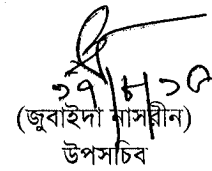 ১৭/৮/১৫
(জুবাইদা নাসরীন)
উপসচিব